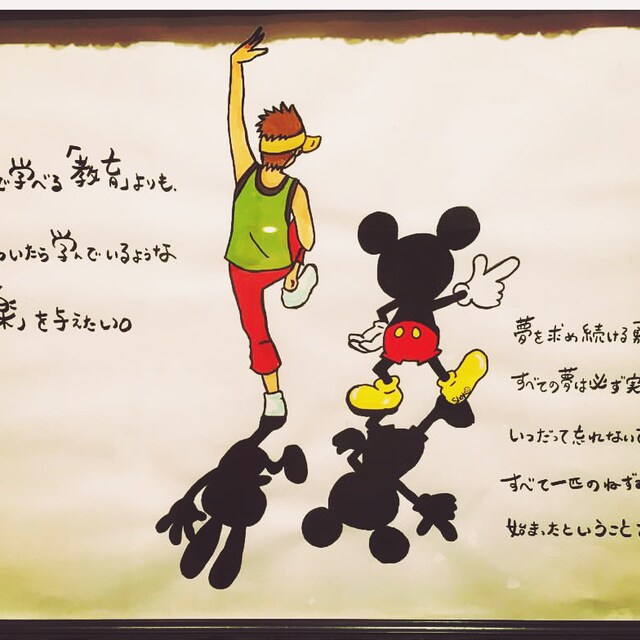 で学べる「教育」よりも、
ついたら学んでいるような
楽」を与えたい。
夢を求め続ける
すべての夢は必ず実
いつだって忘れないで
すべて一匹のねずみ
始まったということ